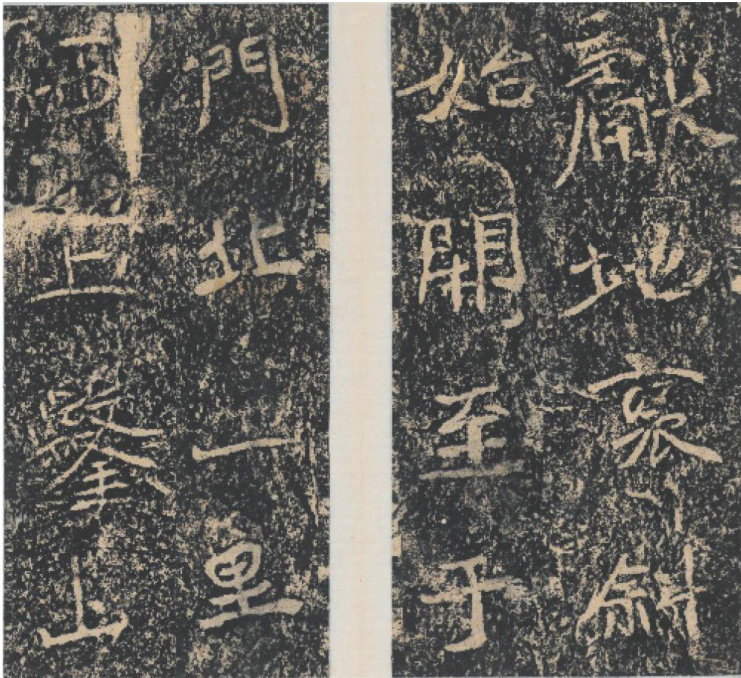 獻地褒斜
始開至于
門北一里
西上鑿山